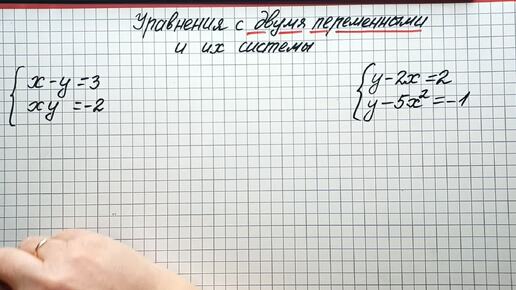 Уравнения с двумя переменными
и их системы
x - y = 3
xy = -2
y - 2x = 2
y - 5x² = -1